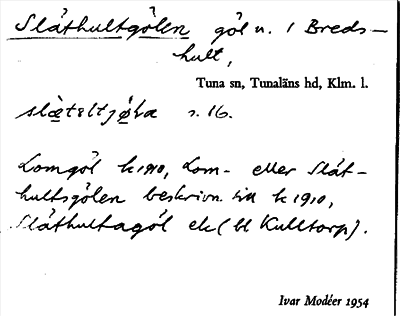 Slåthultgölen göl n. i Breds-
hult,
Tuna sn, Tunaläns hd, Klm. l.
s. 16.
Lomgöl k 1910, Lom- eller Slåt-
hultsgölen beskrivn. till k 1910,
Slåthultagöl ek (bl Kulltorp).
Ivar Modéer 1954